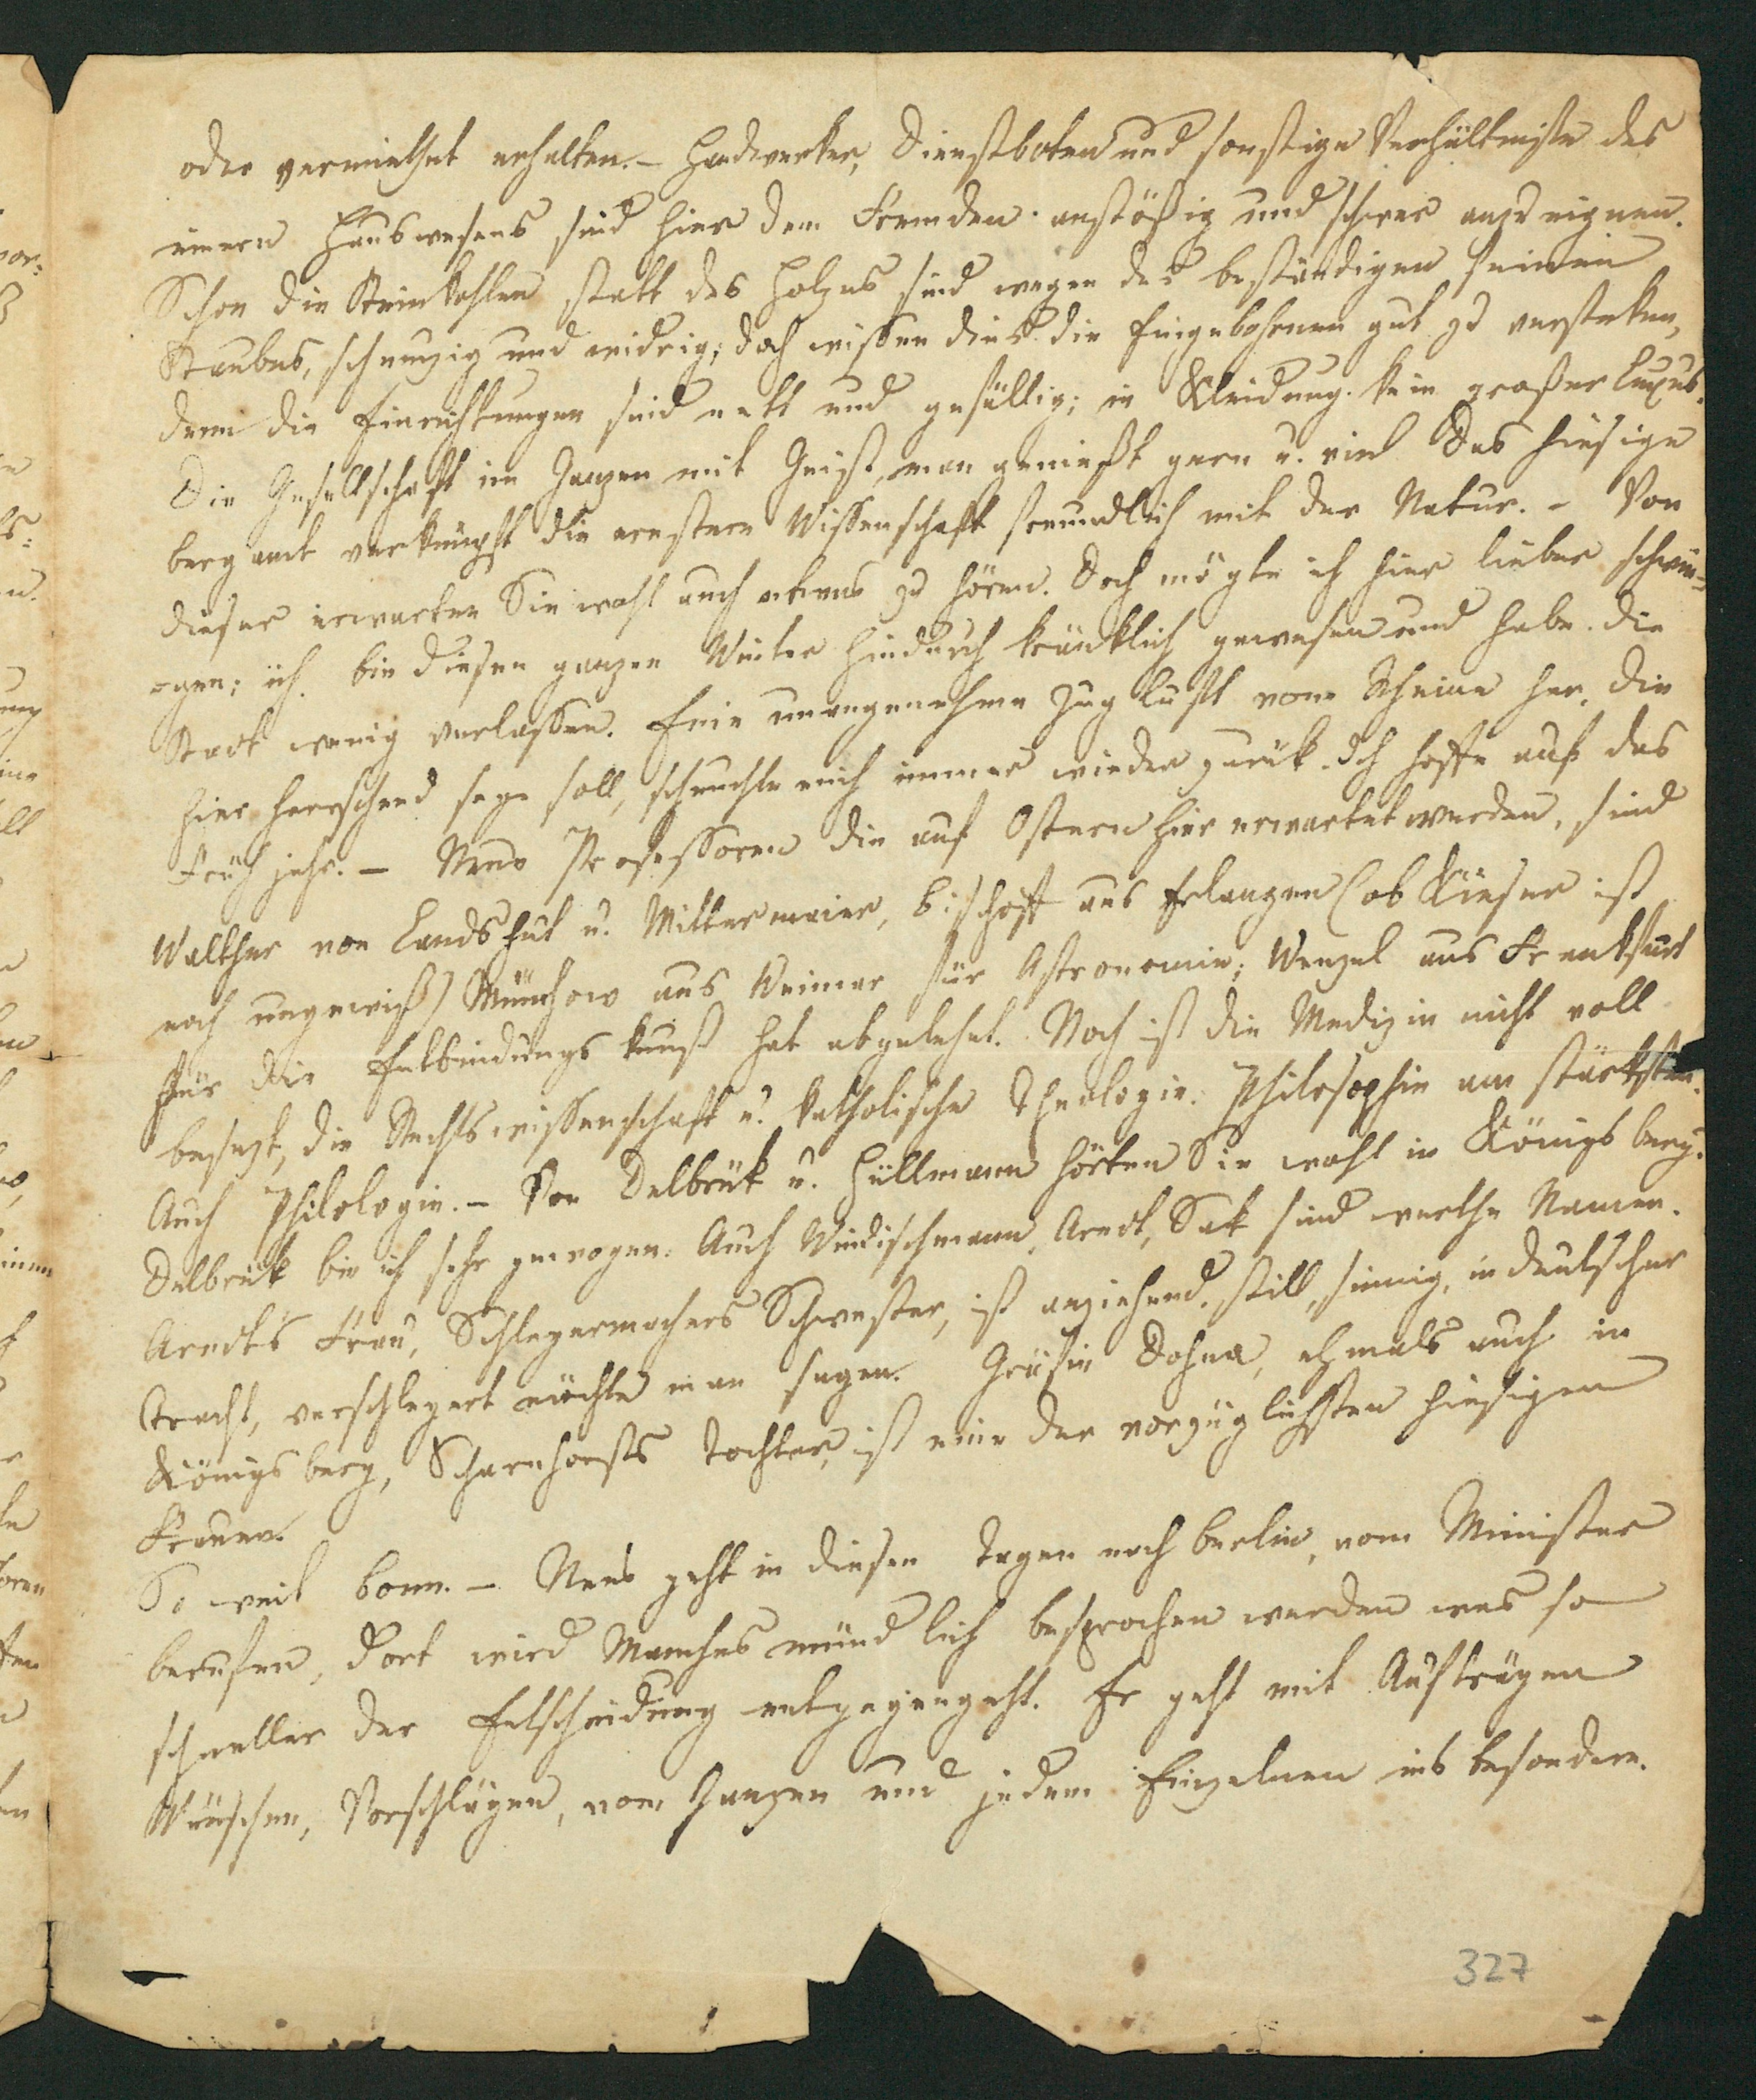 oder vermiethet erhalten. – Handwerker, Dienstboten und sonstige Verhältnisse des
innern Hauswesens sind hier dem Fremden anstößig und schwer anzueignen.
Schon die Steinkohlen statt des Holzes sind wegen des beständigen feinen
Staubes, schmuzig und widrig; doch wissen dies die Eingebohrenen gut zu versteken,
denn die Einrichtungen sind nett und gefällig; in Kleidung kein großer Luxus.
Die Gesellschaft im Ganzen mit Geist, man genießt gern u. viel Das hiesige
Bergamt verknüpft die ernstere Wissenschaft freundlich mit der Natur. – Von
dieser erwarten Sie wohl auch etwas zu hören. Doch mögte ich hier lieber schwei-
-gen; ich bin diesen ganzen Winter hindurch kränklich gewesen und habe die
Stadt wenig verlassen. Eine unangenehme Zugluft vom Rheine her, die
hier herrschend seyn soll, scheuchte mich immer wieder zurük. Ich hoffe auf das
Frühjahr. – Neue Professoren die auf Ostern hier erwartet werden, sind
Walther von Landshut u. Mittermaier, Bischoff aus Erlangen (ob Kieser ist
noch ungewiß) Münchow aus Weimar für Astronomie; Wenzel aus Frankfurt
für die Entbindungskunst hat abgelehnt. Noch ist die Medizin nicht voll
besezt, die Rechtswissenschaft u. katholische Theologie. Philosophie am stärksten.
Auch Philologie. – Von Delbrük u. Hüllmann hörten Sie wohl in Königsberg.
Delbrük bin ich sehr gewogen. Auch Windischmann, Arndt, Sak sind werthe Namen.
Arndts Frau, Schleyermachers Schwester, ist anziehend, still, sinnig, in deutscher
Tracht, verschleyert möchte man sagen. Gräfin Dohna, ehmals auch in
Königsberg, Scharnhorsts Tochter, ist eine der vorzüglichsten hiesigen
Frauen.
So weit Bonn. – Nees geht in diesen Tagen nach Berlin, vom Minister
berufen, dort wird Manches mündlich besprochen werden was so
schneller der Entscheidung entgegengeht. Er geht mit Aufträgen
Wünschen, Vorschlägen, vom Ganzen und jedem Einzelnen ins besondere.
327